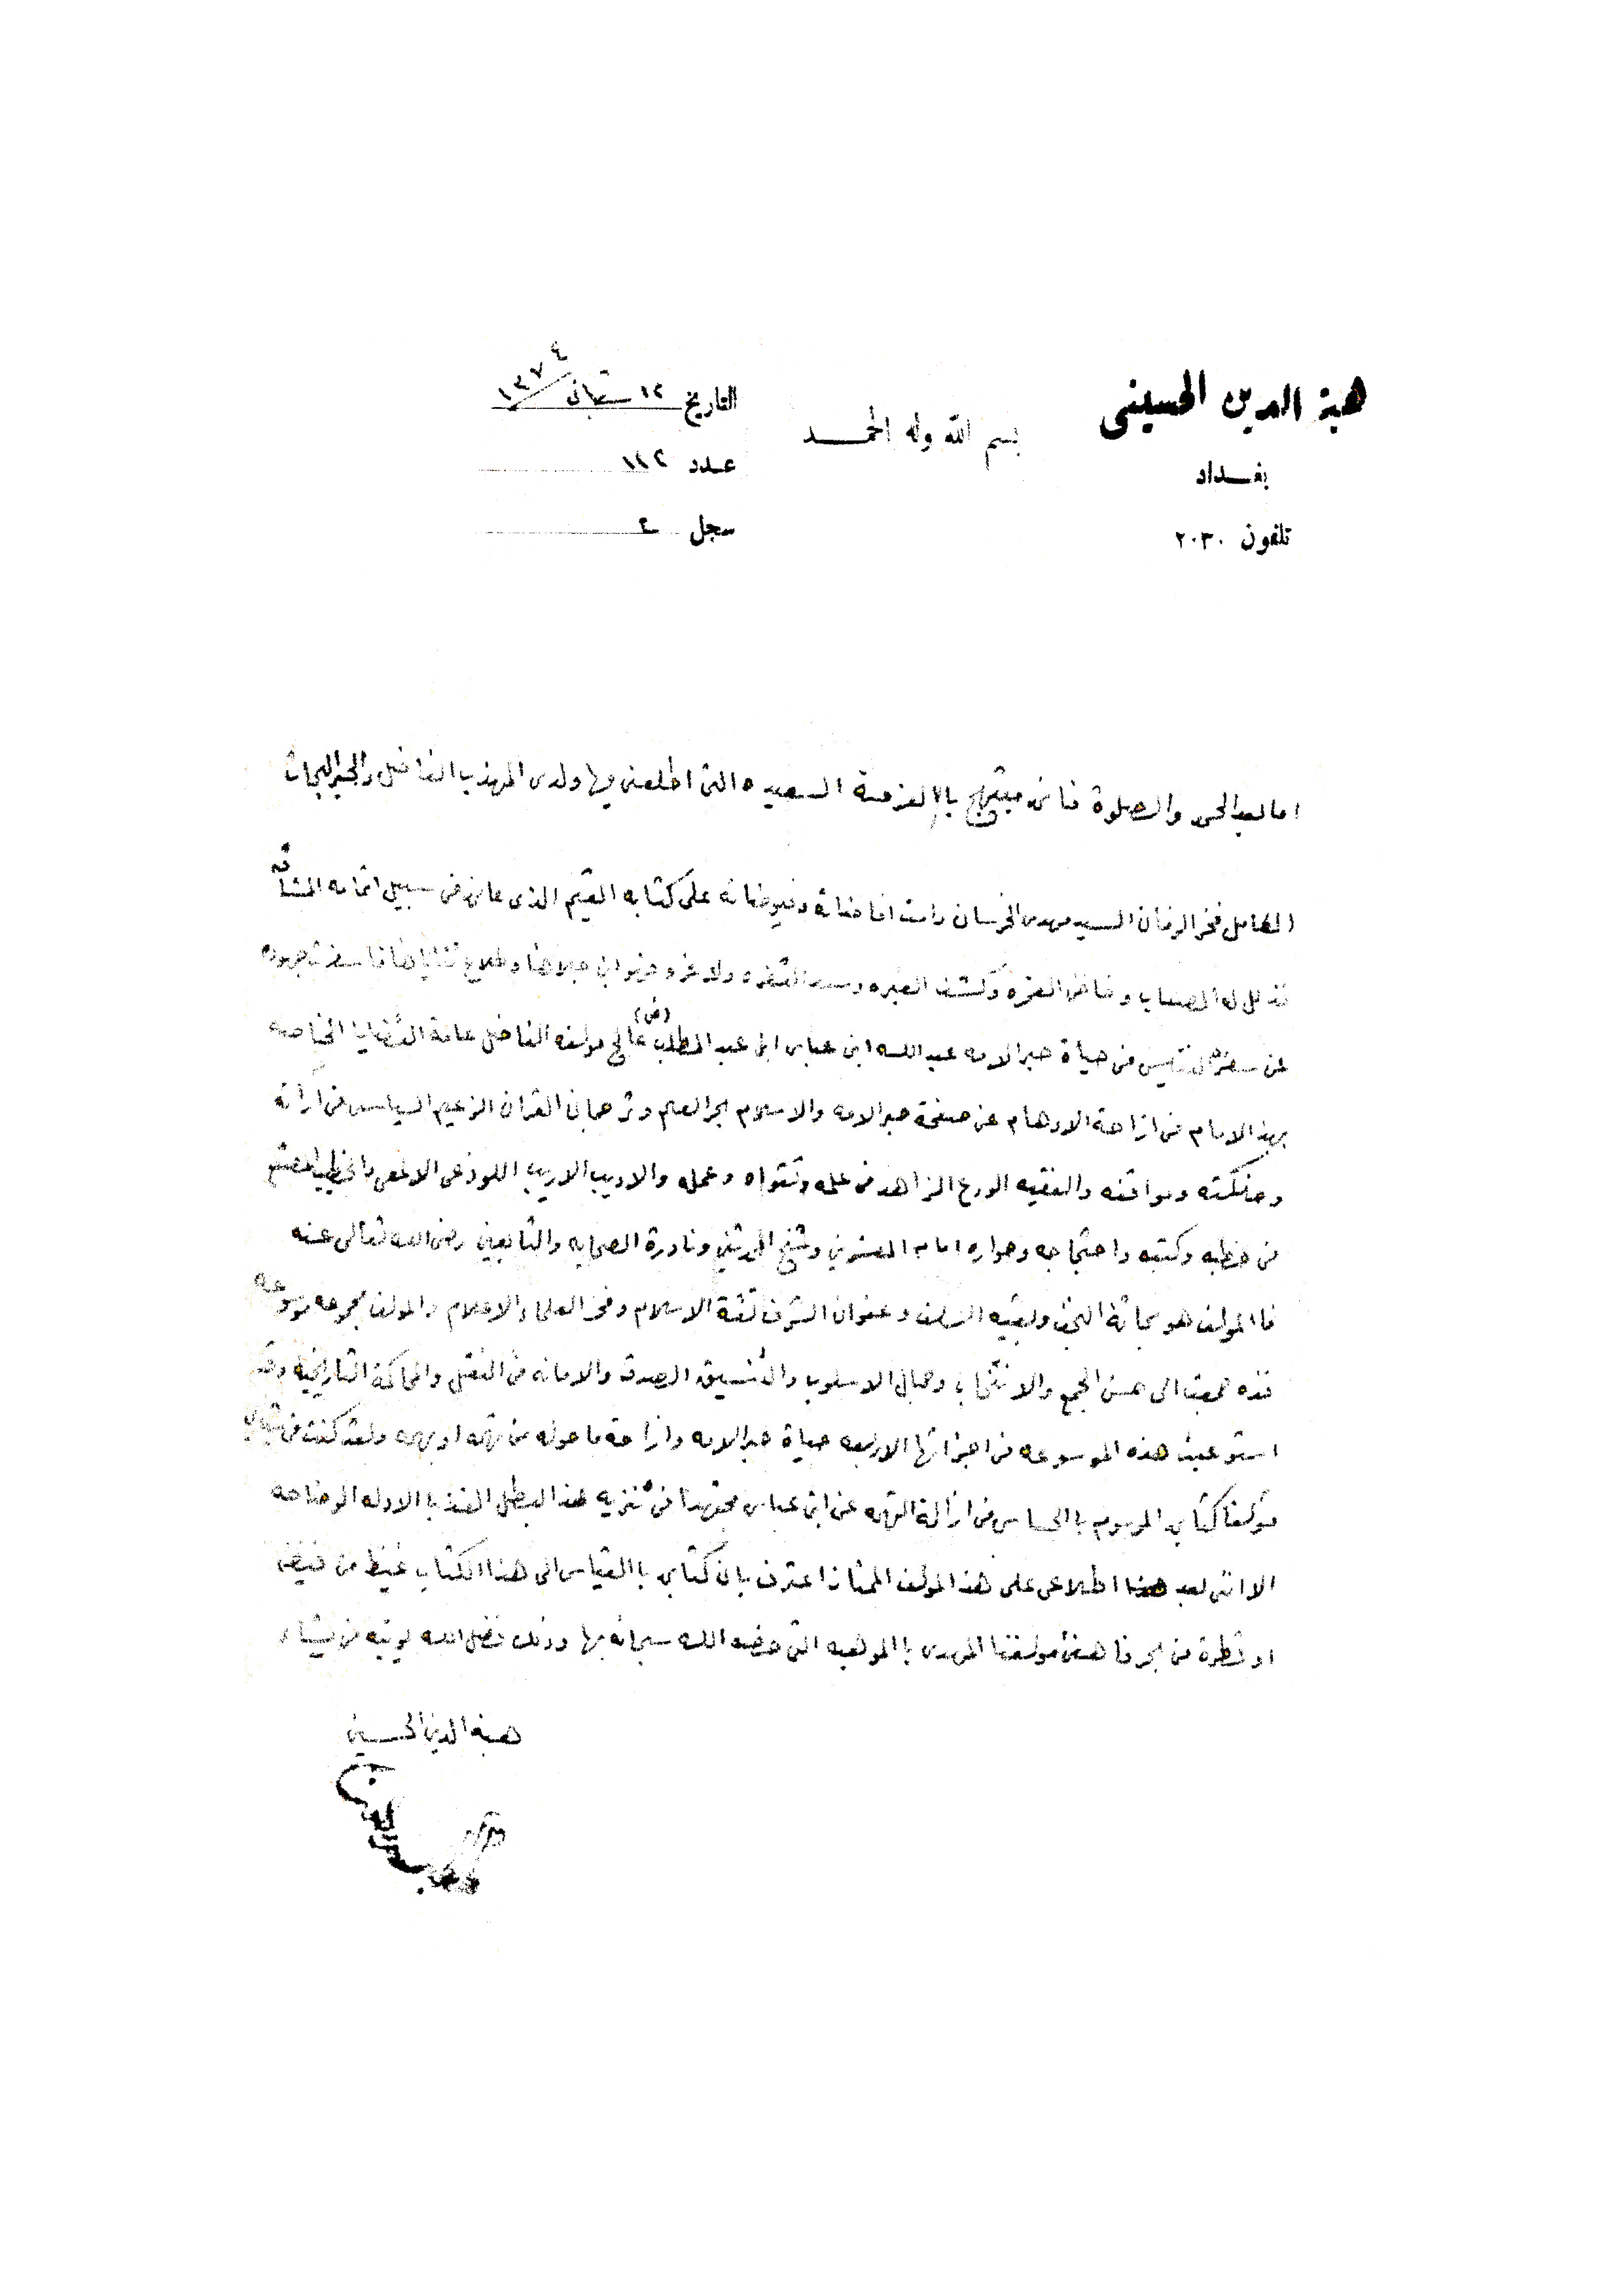 هبة الدين الحسيني
بغداد
تلفون ٢٠٣٠
بسم الله وله الحمد
التاريخ ١٢ شعبان ١٣٧٤
عدد ١٤٢
سجل ٤
اما بعد الحمد والصلوة فاني مبتهج بالفرصة السعيده التي اطلعني فيها ولدي المهذب الفاضل والحبر البحاث
الكامل فخر الزمان السيد مهدي الخرسان دامت افاضاته وفيوضاته على كتابه القيم الذي عانى في سبيل اتمامه المشاق
فذلل له الصعاب وخاض الغمره وكشف العبره وسد الثغره ولا غرو فهو ابن جلاها وطلاع ثناياها فاسفرت جهوده
عن سفره النفيس في حياة حبر الامه عبد الله ابن عباس ابن عبد المطلب (رض) عالج مولفه الفاضل عامة القضايا الخاصه
بهذا الامام في ازاحة الاوهام عن صفحة حبر الامه والاسلام بحر العلم وترجمان القران الزعيم السياسي في ارائه
وحنكته ومواقفه والفقيه الورع الزاهد في علمه وتقواه وعمله والاديب الاريب اللوذعي الالمعي والخطيب المصقع
في خطبه وكتبه واحتجاجه وحواره امام المفسرين وشيخ المحدثين ونادرة الصحابه والتابعين رضي الله تعالى عنه
فاالمولف هو بحاثة النجف وبقيه السلف وعنوان الشرف ثقة الاسلام وفخر العلماء والاعلام والمولف مجموعه موسوعه
فذه جمعت الى حسن الجمع والانتخاب وجمال الاسلوب والتنسيق الصدق والامانه في النقل والمحاكمة التاريخيه وقد
استوعبت هذه الموسوعه في اجزائها الاربعه حياة حبر الامه وازاحة ماحوله من تهمه او بهمه ولقد كنت في شبابي
مولفا كتابي الموسوم باالحساس في ازالة التهمه عن ابن عباس مجتهدا في تنزيه هذا البطل الفذ باالادله الوضاحه
الا انني بعد اطلاعي على هذا المولف الممتاز اعترف بان كتابي باالقياس الى هذا الكتاب غيظ من فيض
او قطرة من بحر فاهنئ مولفنا المهدي باالموهبه التي خصه الله سبحانه بها وذلك فضل الله يوتيه من يشاء
هبة الدين الحسيني